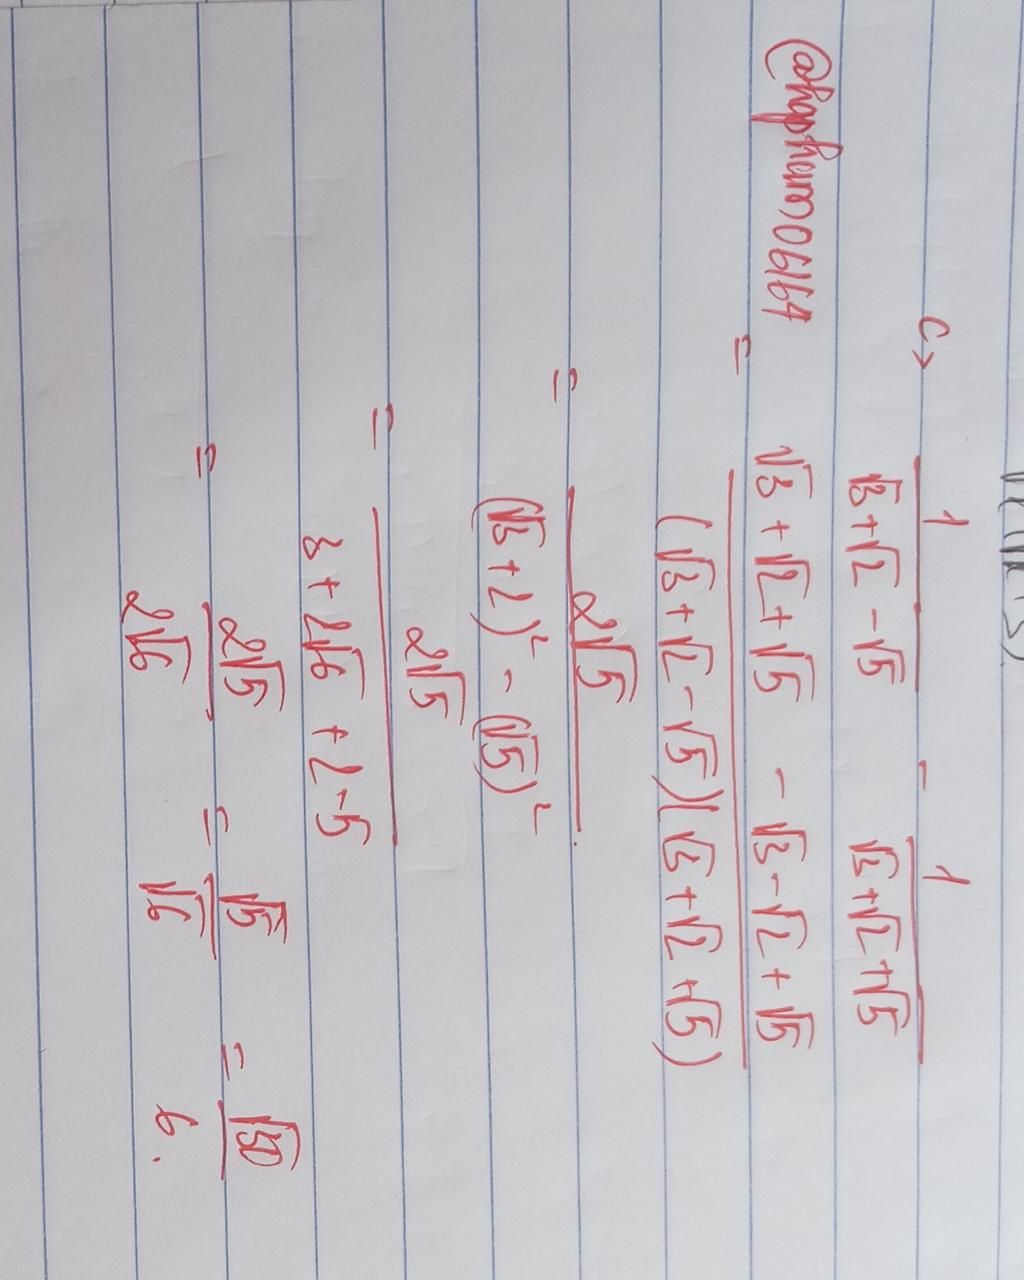 c> 1/(√3+√2-√5) - 1/(√3+√2+√5)
@hapham06164
= (√3+√2+√5 -√3-√2+√5)/((√3+√2-√5)(√3+√2+√5))
= 2√5/((√3+2)² - (√5)²)
= 2√5/(3+2√6+2-5)
= 2√5/2√6 = √5/√6 = √30/6.